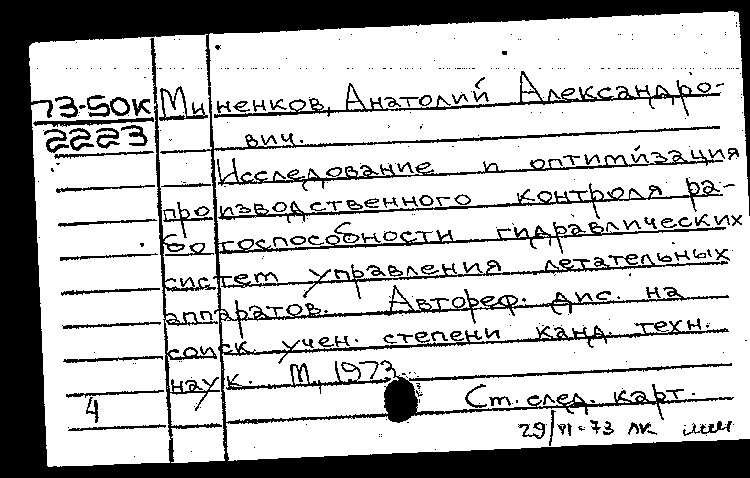 73-50К Миненков, Анатолий Александро-
2223 вич.
Исследование и оптимизация
производственного контроля ра-
ботоспособности гидравлических
систем управления летательных
аппаратов. Автореф. дис. на
соиск. учен. степени канд. техн.
наук. М., 1973.
4 Ст. след. карт.
29/VI-73 ЛК